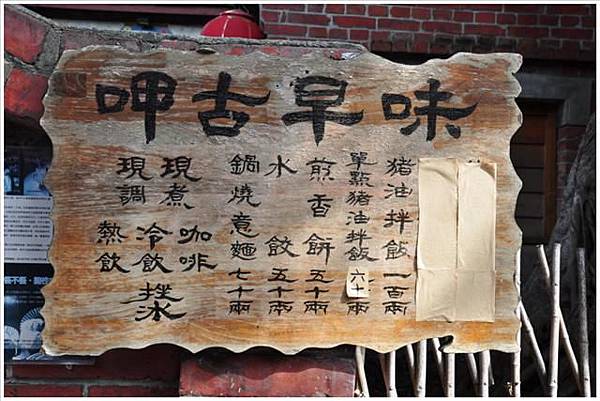 呷古早味
豬油拌飯一百兩
單點豬油拌飯六十兩
煎香餅五十兩
水餃五十兩
鍋燒意麵七十兩
現煮咖啡
現調冷飲
熱飲
挫冰